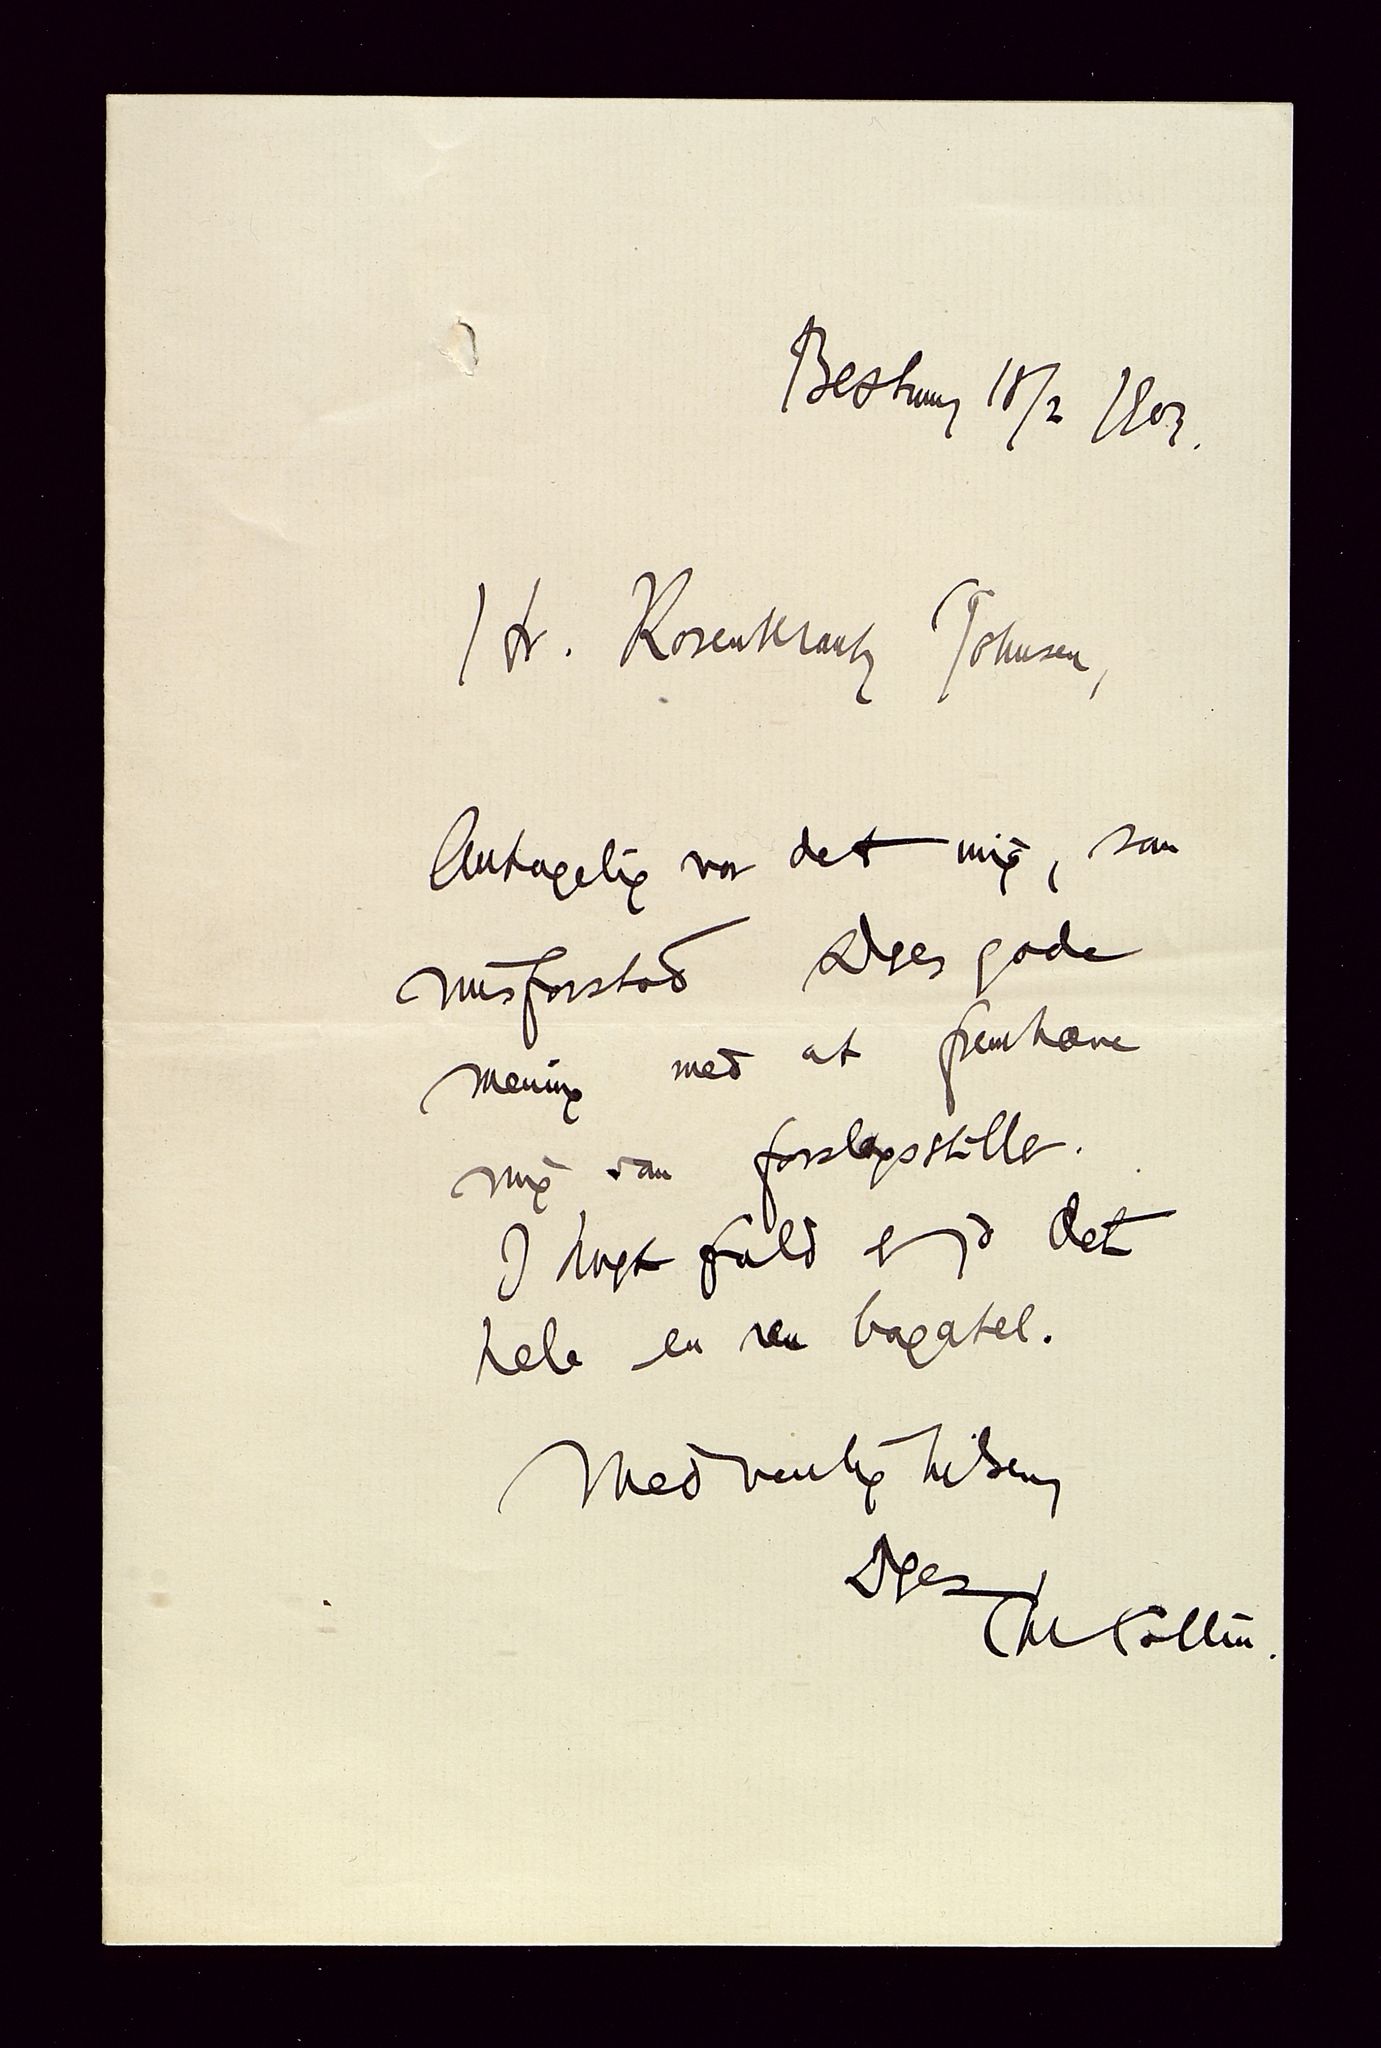 Bestum 18/2 1903.
Hr. Rosenkrantz Johnsen,
Antagelig var det mig, som
misforstod Deres gode
mening med at fremhæve
mig som forslagsstiller.
I hvert fald er jo det
hele en ren bagatel.
Med venlig hilsen
Deres
Chr Collin.